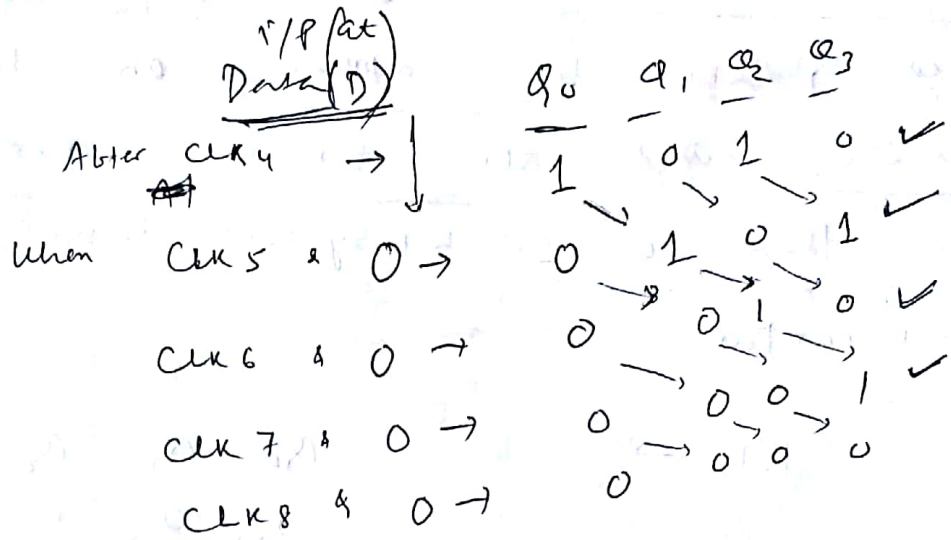 i/p (at
Data (D)
Q0 Q1 Q2 Q3
After CLK 4 → 1 0 1 0 ✓
When CLK 5 & 0 → 0 1 0 1 ✓
CLK 6 & 0 → 0 0 1 0 ✓
CLK 7 & 0 → 0 0 0 1 ✓
CLK 8 & 0 → 0 0 0 0